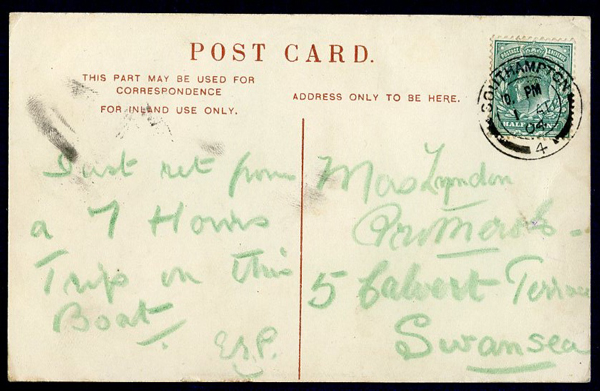 POST CARD.
THIS PART MAY BE USED FOR
CORRESPONDENCE
FOR INLAND USE ONLY.
ADDRESS ONLY TO BE HERE.
SOUTHAMPTON
PM
04
4
HALFPENNY
Just ret from
a 7 Hours
Trip on this
Boat.
E.R.P.
Mrs Lyndon
5 Calvert Terrace
Swansea